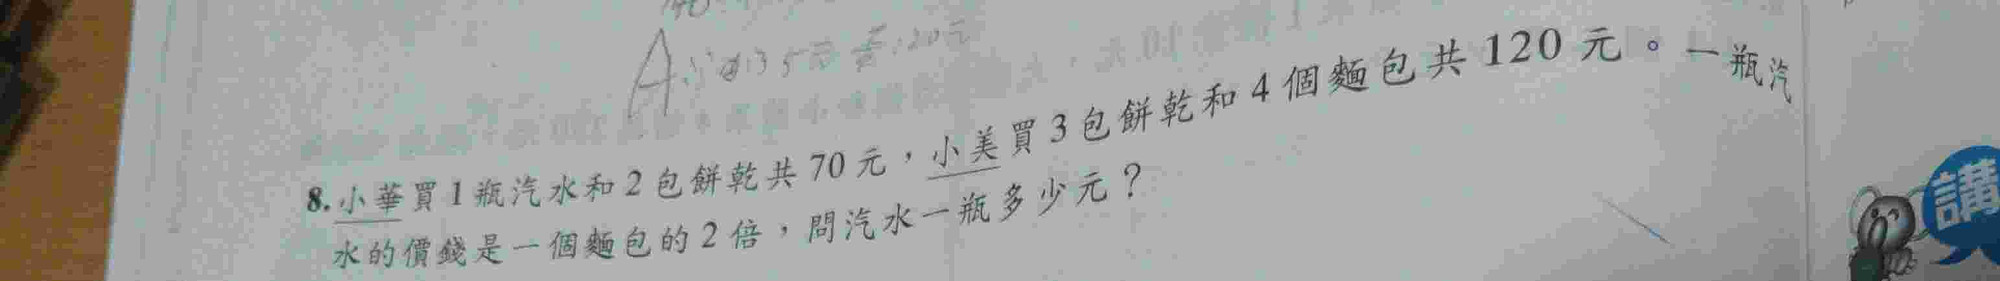 8.小華買1瓶汽水和2包餅乾共70元，小美買3包餅乾和4個麵包共120元。一瓶汽
水的價錢是一個麵包的2倍，問汽水一瓶多少元？
講